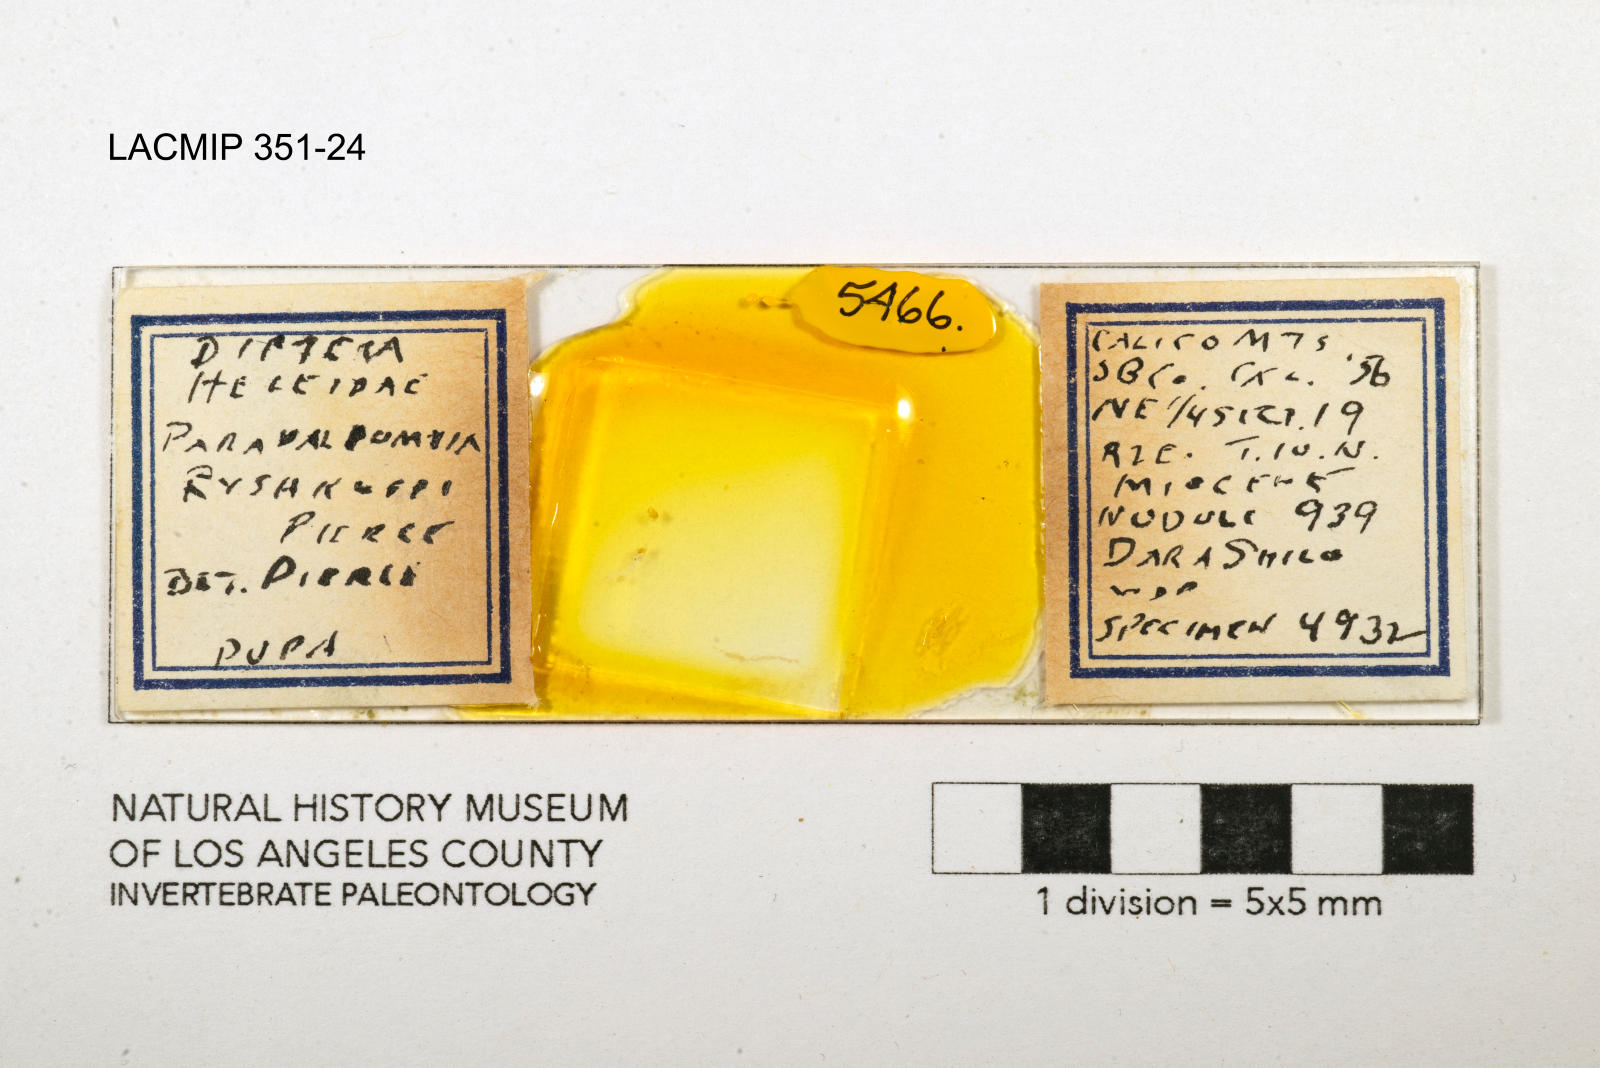 LACMIP 351-24
DIPTERA
HELEIDAE
PARAPALPOMYIA
RYSHKOFFI
PIERCE
DET. PIERCE
PUPA
5466.
CALICO MTS
SBCo. CAL. '56
NE 1/4 SECT. 19
R2E. T.10.N.
MIOCENE
NODULE 939
DARA SHILO
WDP
SPECIMEN 4932
NATURAL HISTORY MUSEUM
OF LOS ANGELES COUNTY
INVERTEBRATE PALEONTOLOGY
1 division = 5x5 mm